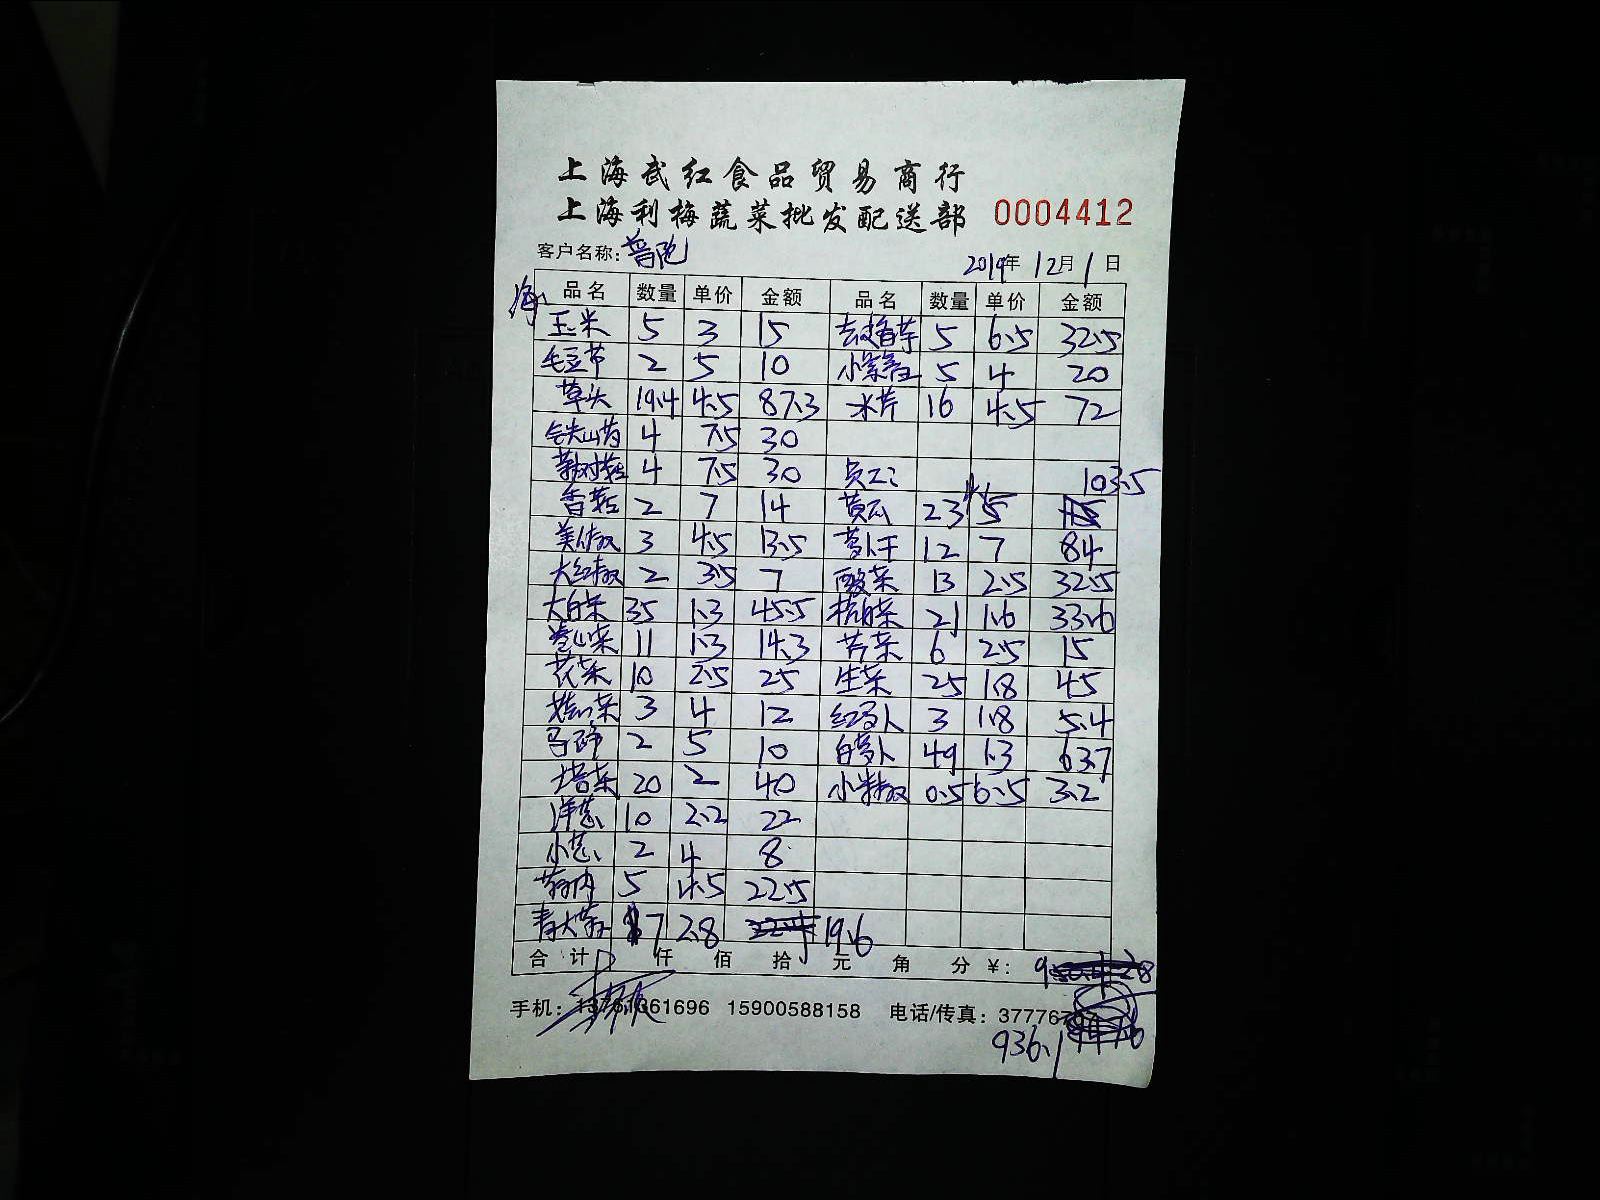 上海武红食品贸易商行
上海利梅蔬菜批发配送部 0004412
客户名称: 普陀 2019年 12月 1日
品名 数量 单价 金额 品名 数量 单价 金额
玉米 5 3 15 去皮香芋 5 6.5 32.5
毛豆节 2 5 10 5 4 20
草头 19.4 4.5 87.3 水芹 16 4.5 72
铁山药 4 7.5 30
茶树菇 4 7.5 30 员工: 103.5
香菇 2 7 14 黄瓜 23
美人椒 3 4.5 13.5 萝卜干 12 7 84
大红椒 2 3.5 7 酸菜 13 2.5 32.5
大白菜 35 1.3 45.5 杭白菜 21 1.6 33.6
卷心菜 11 1.3 14.3 芹菜 6 2.5 15
花菜 10 2.5 25 生菜 25 1.8 45
3 4 12 红萝卜 3 1.8 5.4
马蹄 2 5 10 白萝卜 49 1.3 63.7
塔菜 20 2 40 小米椒 0.5 6.5 3.2
洋葱 10 2.2 22
小葱 2 4 8
5 4.5 22.5
7 2.8 19.6
合计 仟 佰 拾 元 角 分 ¥:
手机: 13761361696 15900588158 电话/传真: 37776
936.1